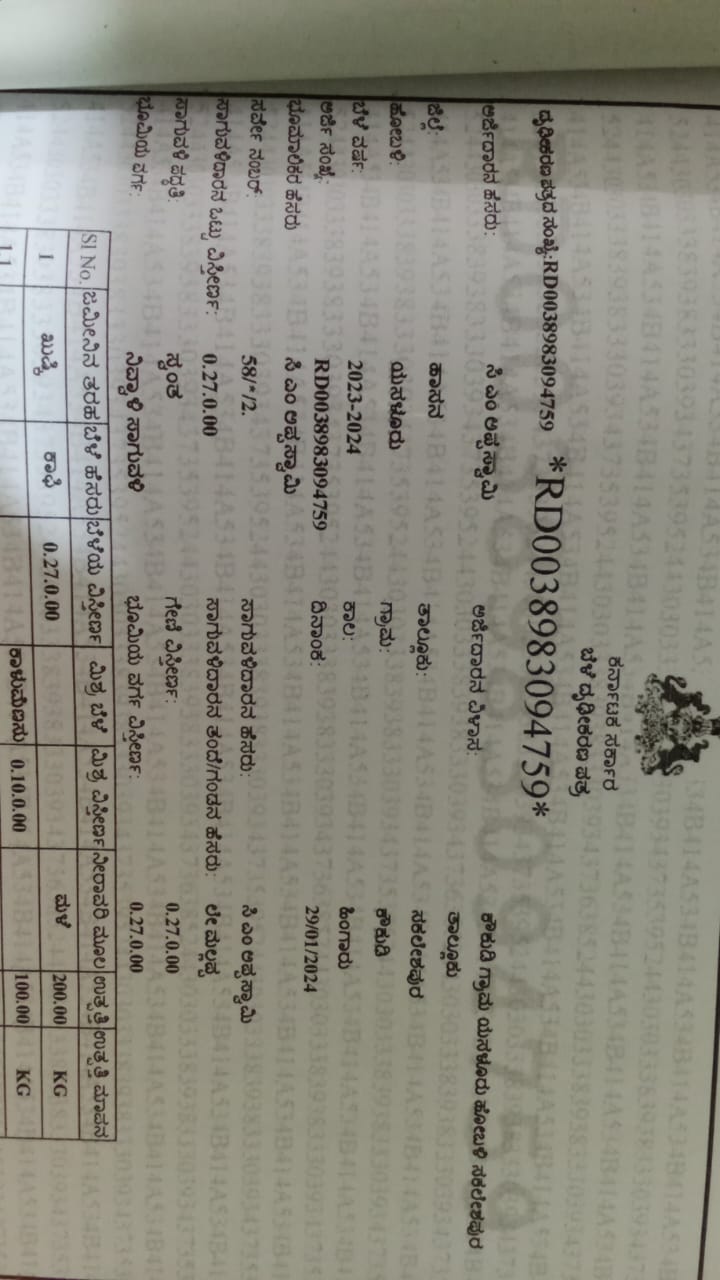 ಕರ್ನಾಟಕ ಸರ್ಕಾರ
ಬೆಳೆ ದೃಢೀಕರಣ ಪತ್ರ
ದೃಢೀಕರಣ ಪತ್ರದ ಸಂಖ್ಯೆ:RD0038983094759 *RD0038983094759*
ಅರ್ಜಿದಾರನ ಹೆಸರು: ಸಿ ಎಂ ಅಪ್ಪಸ್ವಾಮಿ ಅರ್ಜಿದಾರನ ವಿಳಾಸ: ಕೌಕುಡಿ ಗ್ರಾಮ ಯಸಳೂರು ಹೋಬಳಿ ಸಕಲೇಶಪುರ
ತಾಲ್ಲೂಕು
ಜಿಲ್ಲೆ: ಹಾಸನ ತಾಲ್ಲೂಕು: ಸಕಲೇಶಪುರ
ಹೋಬಳಿ: ಯಸಳೂರು ಗ್ರಾಮ: ಕೌಕುಡಿ
ಬೆಳೆ ವರ್ಷ: 2023-2024 ಕಾಲ: ಹಿಂಗಾರು
ಅರ್ಜಿ ಸಂಖ್ಯೆ: RD0038983094759 ದಿನಾಂಕ: 29/01/2024
ಭೂಮಾಲಿಕರ ಹೆಸರು ಸಿ ಎಂ ಅಪ್ಪಸ್ವಾಮಿ
ಸರ್ವೇ ನಂಬರ್: 58/*/2. ಸಾಗುವಳಿದಾರನ ಹೆಸರು: ಸಿ ಎಂ ಅಪ್ಪಸ್ವಾಮಿ
ಸಾಗುವಳಿದಾರನ ಒಟ್ಟು ವಿಸ್ತೀರ್ಣ: 0.27.0.00 ಸಾಗುವಳಿದಾರನ ತಂದೆ/ಗಂಡನ ಹೆಸರು: ಲೇ ಮಲ್ಲಪ್ಪ
ಸಾಗುವಳಿ ಪದ್ಧತಿ: ಸ್ವಂತ ಗೇಣಿ ವಿಸ್ತೀರ್ಣ: 0.27.0.00
ಭೂಮಿಯ ವರ್ಗ: ನಿವ್ವಾಳಿ ಸಾಗುವಳಿ ಭೂಮಿಯ ವರ್ಗ ವಿಸ್ತೀರ್ಣ: 0.27.0.00
Sl No. ಜಮೀನಿನ ತರಹ ಬೆಳೆ ಹೆಸರು ಬೆಳೆಯ ವಿಸ್ತೀರ್ಣ ಮಿಶ್ರ ಬೆಳೆ ಮಿಶ್ರ ವಿಸ್ತೀರ್ಣ ನೀರಾವರಿ ಮೂಲ ಉತ್ಪತ್ತಿ ಉತ್ಪತ್ತಿ ಮಾಪನ
1 ಖುಷ್ಕಿ ಕಾಫಿ 0.27.0.00 ಮಳೆ 200.00 KG
1.1 ಕಾಳುಮೆಣಸು 0.10.0.00 100.00 KG